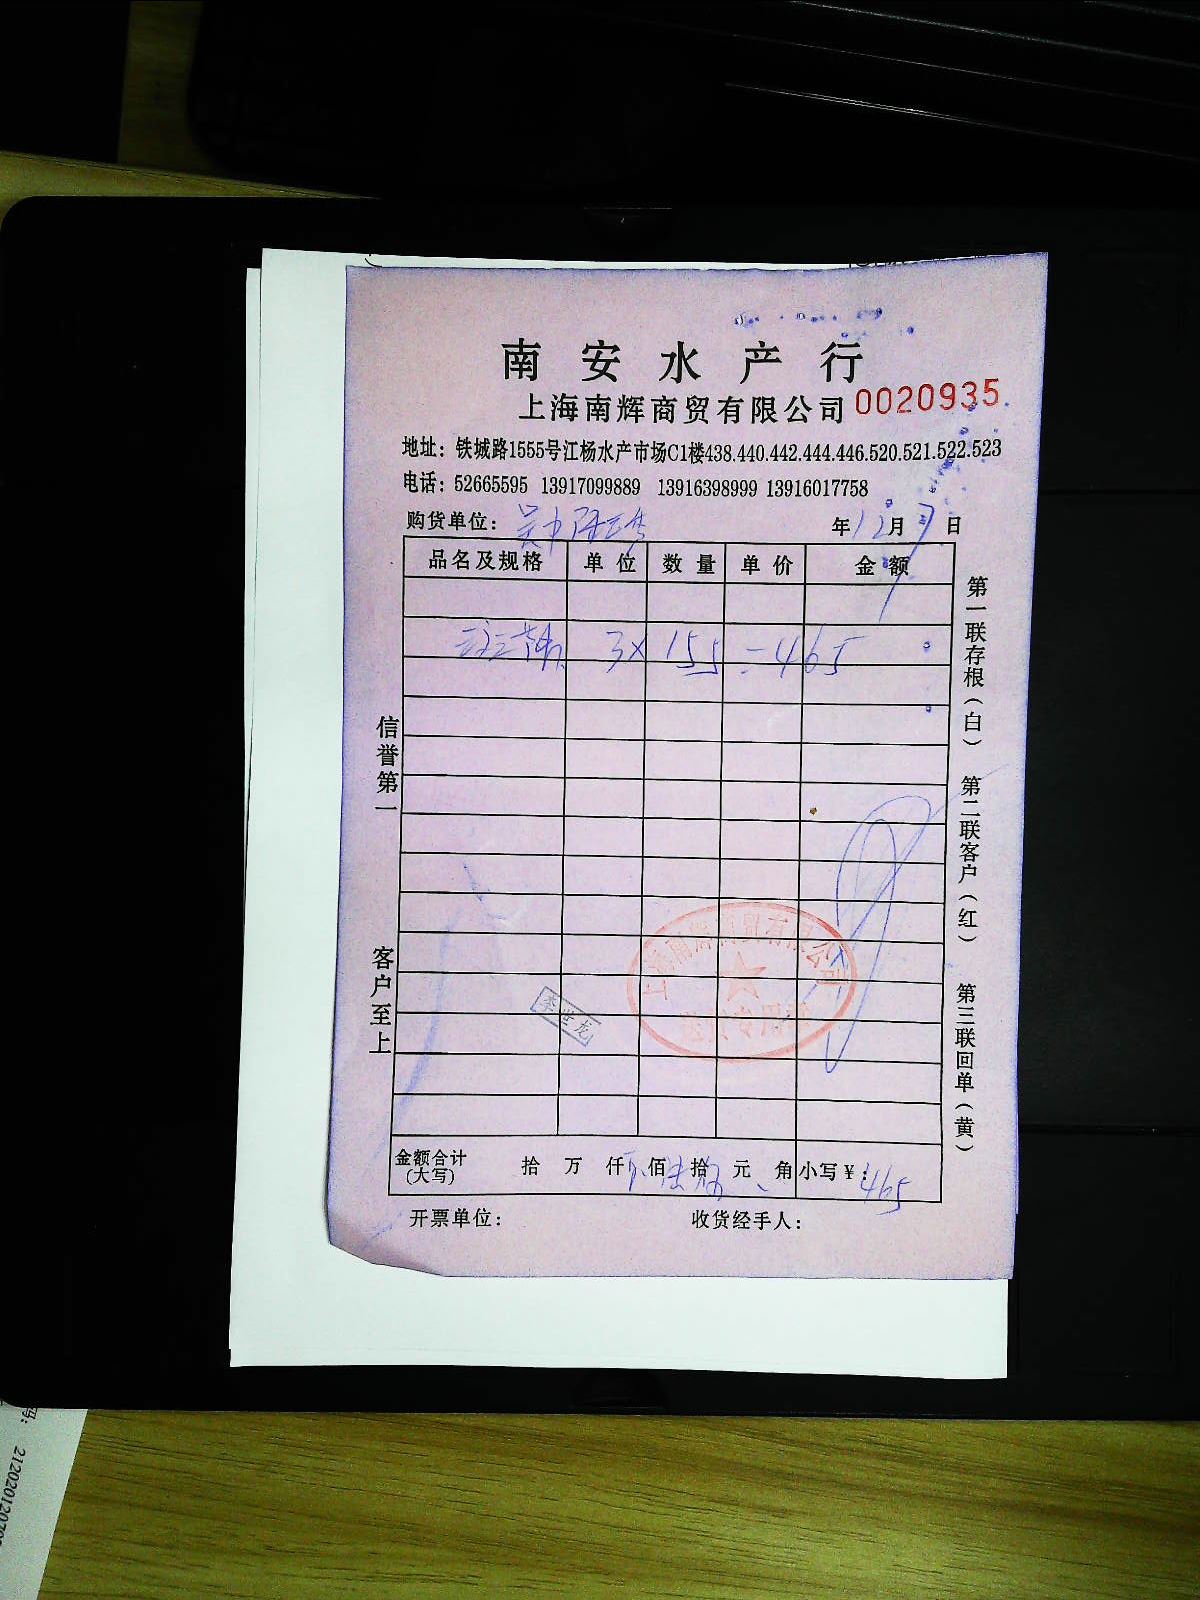 南安水产行
上海南辉商贸有限公司 0020935
地址：铁城路1555号江杨水产市场C1楼438.440.442.444.446.520.521.522.523
电话：52665595 13917099889 13916398999 13916017758
购货单位： 年12月7日
品名及规格 单位 数量 单价 金额
3× 155 = 465
信誉第一
客户至上
第一联存根（白）
第二联客户（红）
第三联回单（黄）
李世龙
金额合计 拾 万 仟 佰 拾 元 角 小写¥：465
(大写)
开票单位： 收货经手人：
码： 2120201207